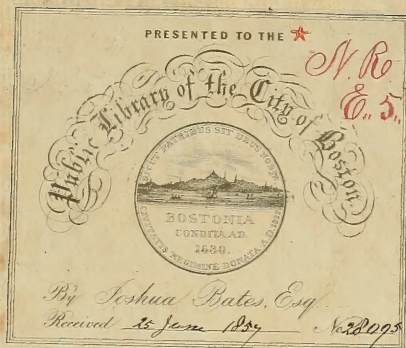 PRESENTED TO THE
N. R
E. 5.
Public Library of the City of Boston
SICUT PATRIBUS SIT DEUS NOBIS
BOSTONIA
CONDITA A.D.
1630.
CIVITATIS REGIMINE DONATA A.D. 1822
By Joshua Bates, Esq.
Received 25 June 1857 No 28095